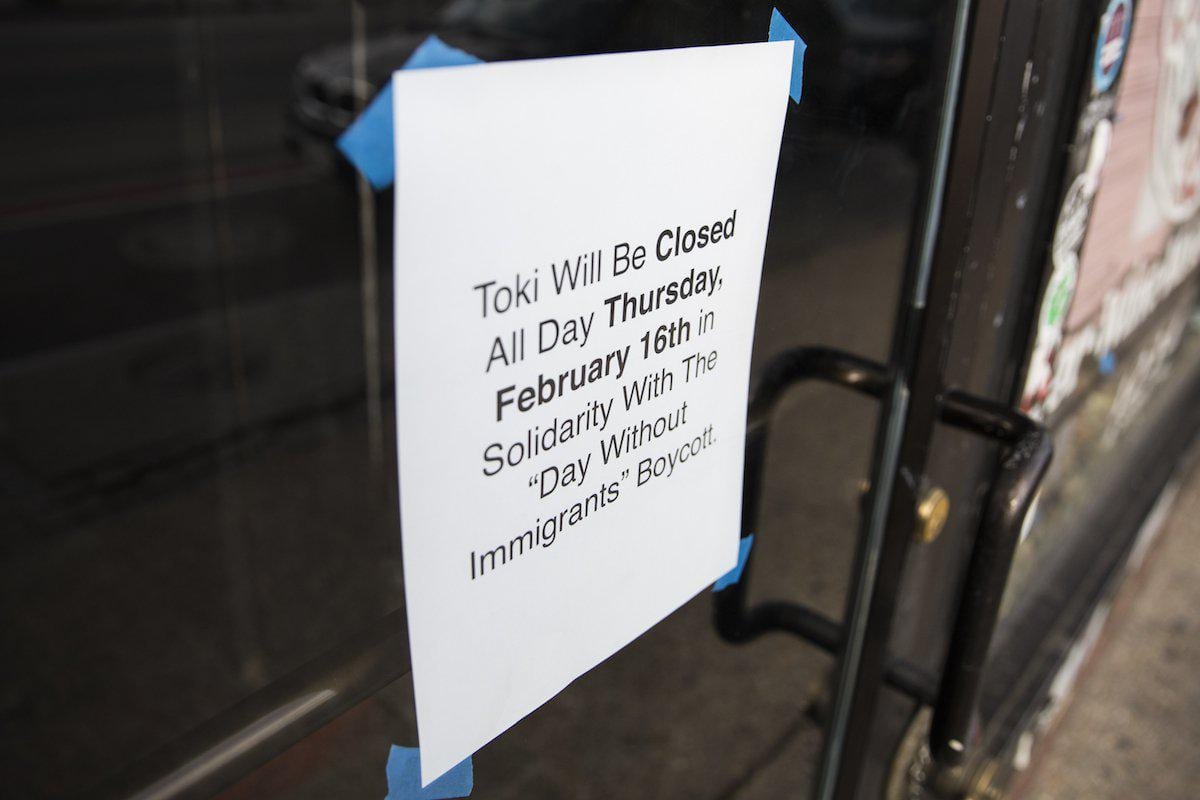 Toki Will Be Closed
All Day Thursday,
February 16th in
Solidarity With The
“Day Without
Immigrants” Boycott.